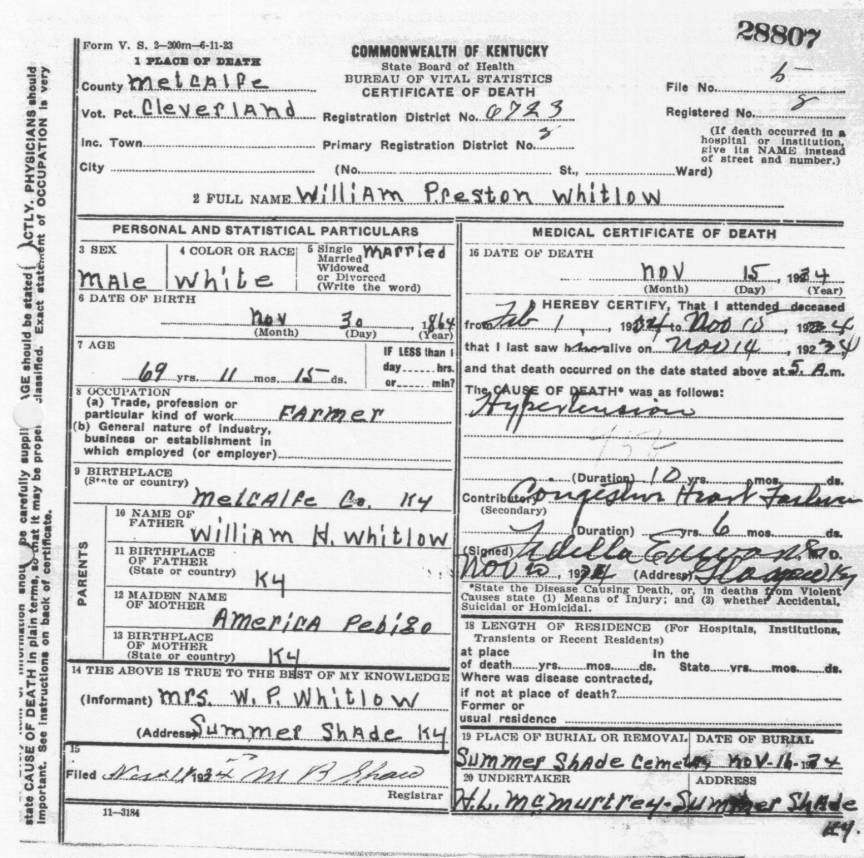 28807
Form V. S. 2—200m—6-11-23
1 PLACE OF DEATH
COMMONWEALTH OF KENTUCKY
State Board of Health
BUREAU OF VITAL STATISTICS
CERTIFICATE OF DEATH
County Metcalfe
File No. 5
Vot. Pct. Cleverland
Registration District No. 6723
Registered No. 8
Inc. Town
Primary Registration District No. 8
(If death occurred in a hospital or institution, give its NAME instead of street and number.)
City (No. St., Ward)
2 FULL NAME William Preston Whitlow
PERSONAL AND STATISTICAL PARTICULARS
3 SEX
Male
4 COLOR OR RACE
White
5 Single Married Widowed or Divorced (Write the word)
Married
6 DATE OF BIRTH
Nov 30, 1864
(Month) (Day) (Year)
7 AGE
69 yrs. 11 mos. 15 ds.
IF LESS than 1
day hrs.
or min?
8 OCCUPATION
(a) Trade, profession or
particular kind of work Farmer
(b) General nature of industry,
business or establishment in
which employed (or employer)
9 BIRTHPLACE
(State or country)
Metcalfe Co. Ky
PARENTS
10 NAME OF
FATHER
William H. Whitlow
11 BIRTHPLACE
OF FATHER
(State or country)
Ky
12 MAIDEN NAME
OF MOTHER
America Pebigo
13 BIRTHPLACE
OF MOTHER
(State or country)
Ky
14 THE ABOVE IS TRUE TO THE BEST OF MY KNOWLEDGE
(Informant) Mrs. W. P. Whitlow
(Address) Summer Shade Ky
15
Filed 1934 M B Shaw
Registrar
11—3184
MEDICAL CERTIFICATE OF DEATH
16 DATE OF DEATH
Nov 15, 1934
(Month) (Day) (Year)
I HEREBY CERTIFY, That I attended deceased
from Feb 1, 1934 to Nov 15, 1934
that I last saw him alive on Nov 14, 1934
and that death occurred on the date stated above at 5 A.m.
The CAUSE OF DEATH* was as follows:
Hypertension
(Duration) 10 yrs. mos. ds.
Contributory Congestive Heart Failure
(Secondary)
(Duration) yrs. 6 mos. ds.
(Signed) M. D.
Nov 1934 (Address) Glasgow Ky
*State the Disease Causing Death, or, in deaths from Violent
Causes state (1) Means of Injury; and (2) whether Accidental,
Suicidal or Homicidal.
18 LENGTH OF RESIDENCE (For Hospitals, Institutions,
Transients or Recent Residents)
at place In the
of death yrs. mos. ds. State yrs. mos. ds.
Where was disease contracted,
if not at place of death?
Former or
usual residence
19 PLACE OF BURIAL OR REMOVAL
Summer Shade Cemetery
DATE OF BURIAL
Nov-16-1934
20 UNDERTAKER
ADDRESS
H.L. McMurtrey-Summer Shade
Ky.
AGE should be stated EXACTLY. PHYSICIANS should
state CAUSE OF DEATH in plain terms, so that it may be properly classified. Exact statement of OCCUPATION is very
important. See instructions on back of certificate.